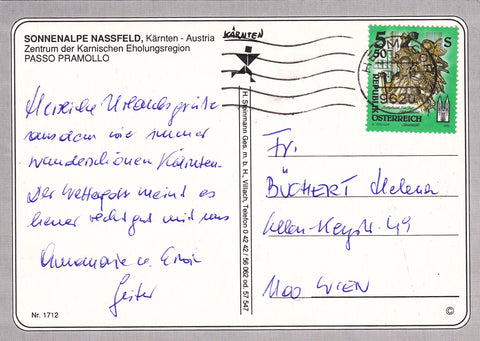 SONNENALPE NASSFELD, Kärnten - Austria
Zentrum der Karnischen Eholungsregion
PASSO PRAMOLLO
Herzliche Urlaubsgrüße
aus dem wie immer
wunderschönen Kärnten.
Der Wettergott meint es
heuer recht gut mit uns
Annemarie u. Erwin
Nr. 1712
H. Steinmann Ges. m. b. H., Villach, Telefon 0 42 42 / 56 062 od. 57 547
KÄRNTEN
9620
5 50 S
REPUBLIK
ÖSTERREICH
Fr.
BÜCHERT Helena
49
1100 WIEN
©